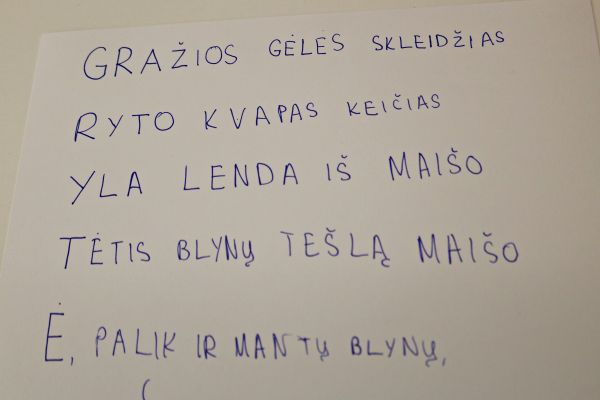 GRAŽIOS GĖLĖS SKLEIDŽIAS
RYTO KVAPAS KEIČIAS
YLA LENDA IŠ MAIŠO
TĖTIS BLYNŲ TEŠLĄ MAIŠO
Ė, PALIK IR MAN TŲ BLYNŲ,